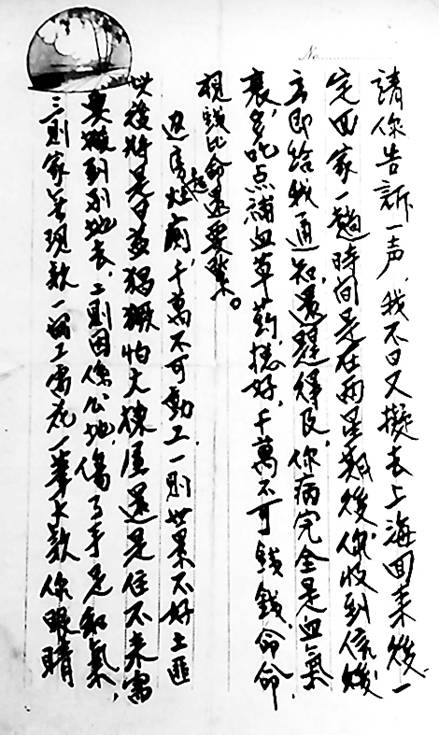 No.
請你告訴一声，我不日又擬去上海回来後，一
定回家一趟時間是在兩星期後，你收到信後
立即给我通知，還延祥及，你病完全是血氣
衰，多吃点補血草药，揔好，千萬不可錢錢，命命，
視錢比命還要緊。
造房灶廁，千萬不可動工，一則世界不好土匪
以後将是日益猖獗怕大棟屋還是住不来需
要搬到别地去，二則因係公地，傷了手足和氣，
三則家無現款一留工需花一筆大款你眼睛